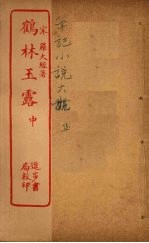 宋 羅大經著
鶴林玉露 中
進步書
局校印
筆記小說大觀